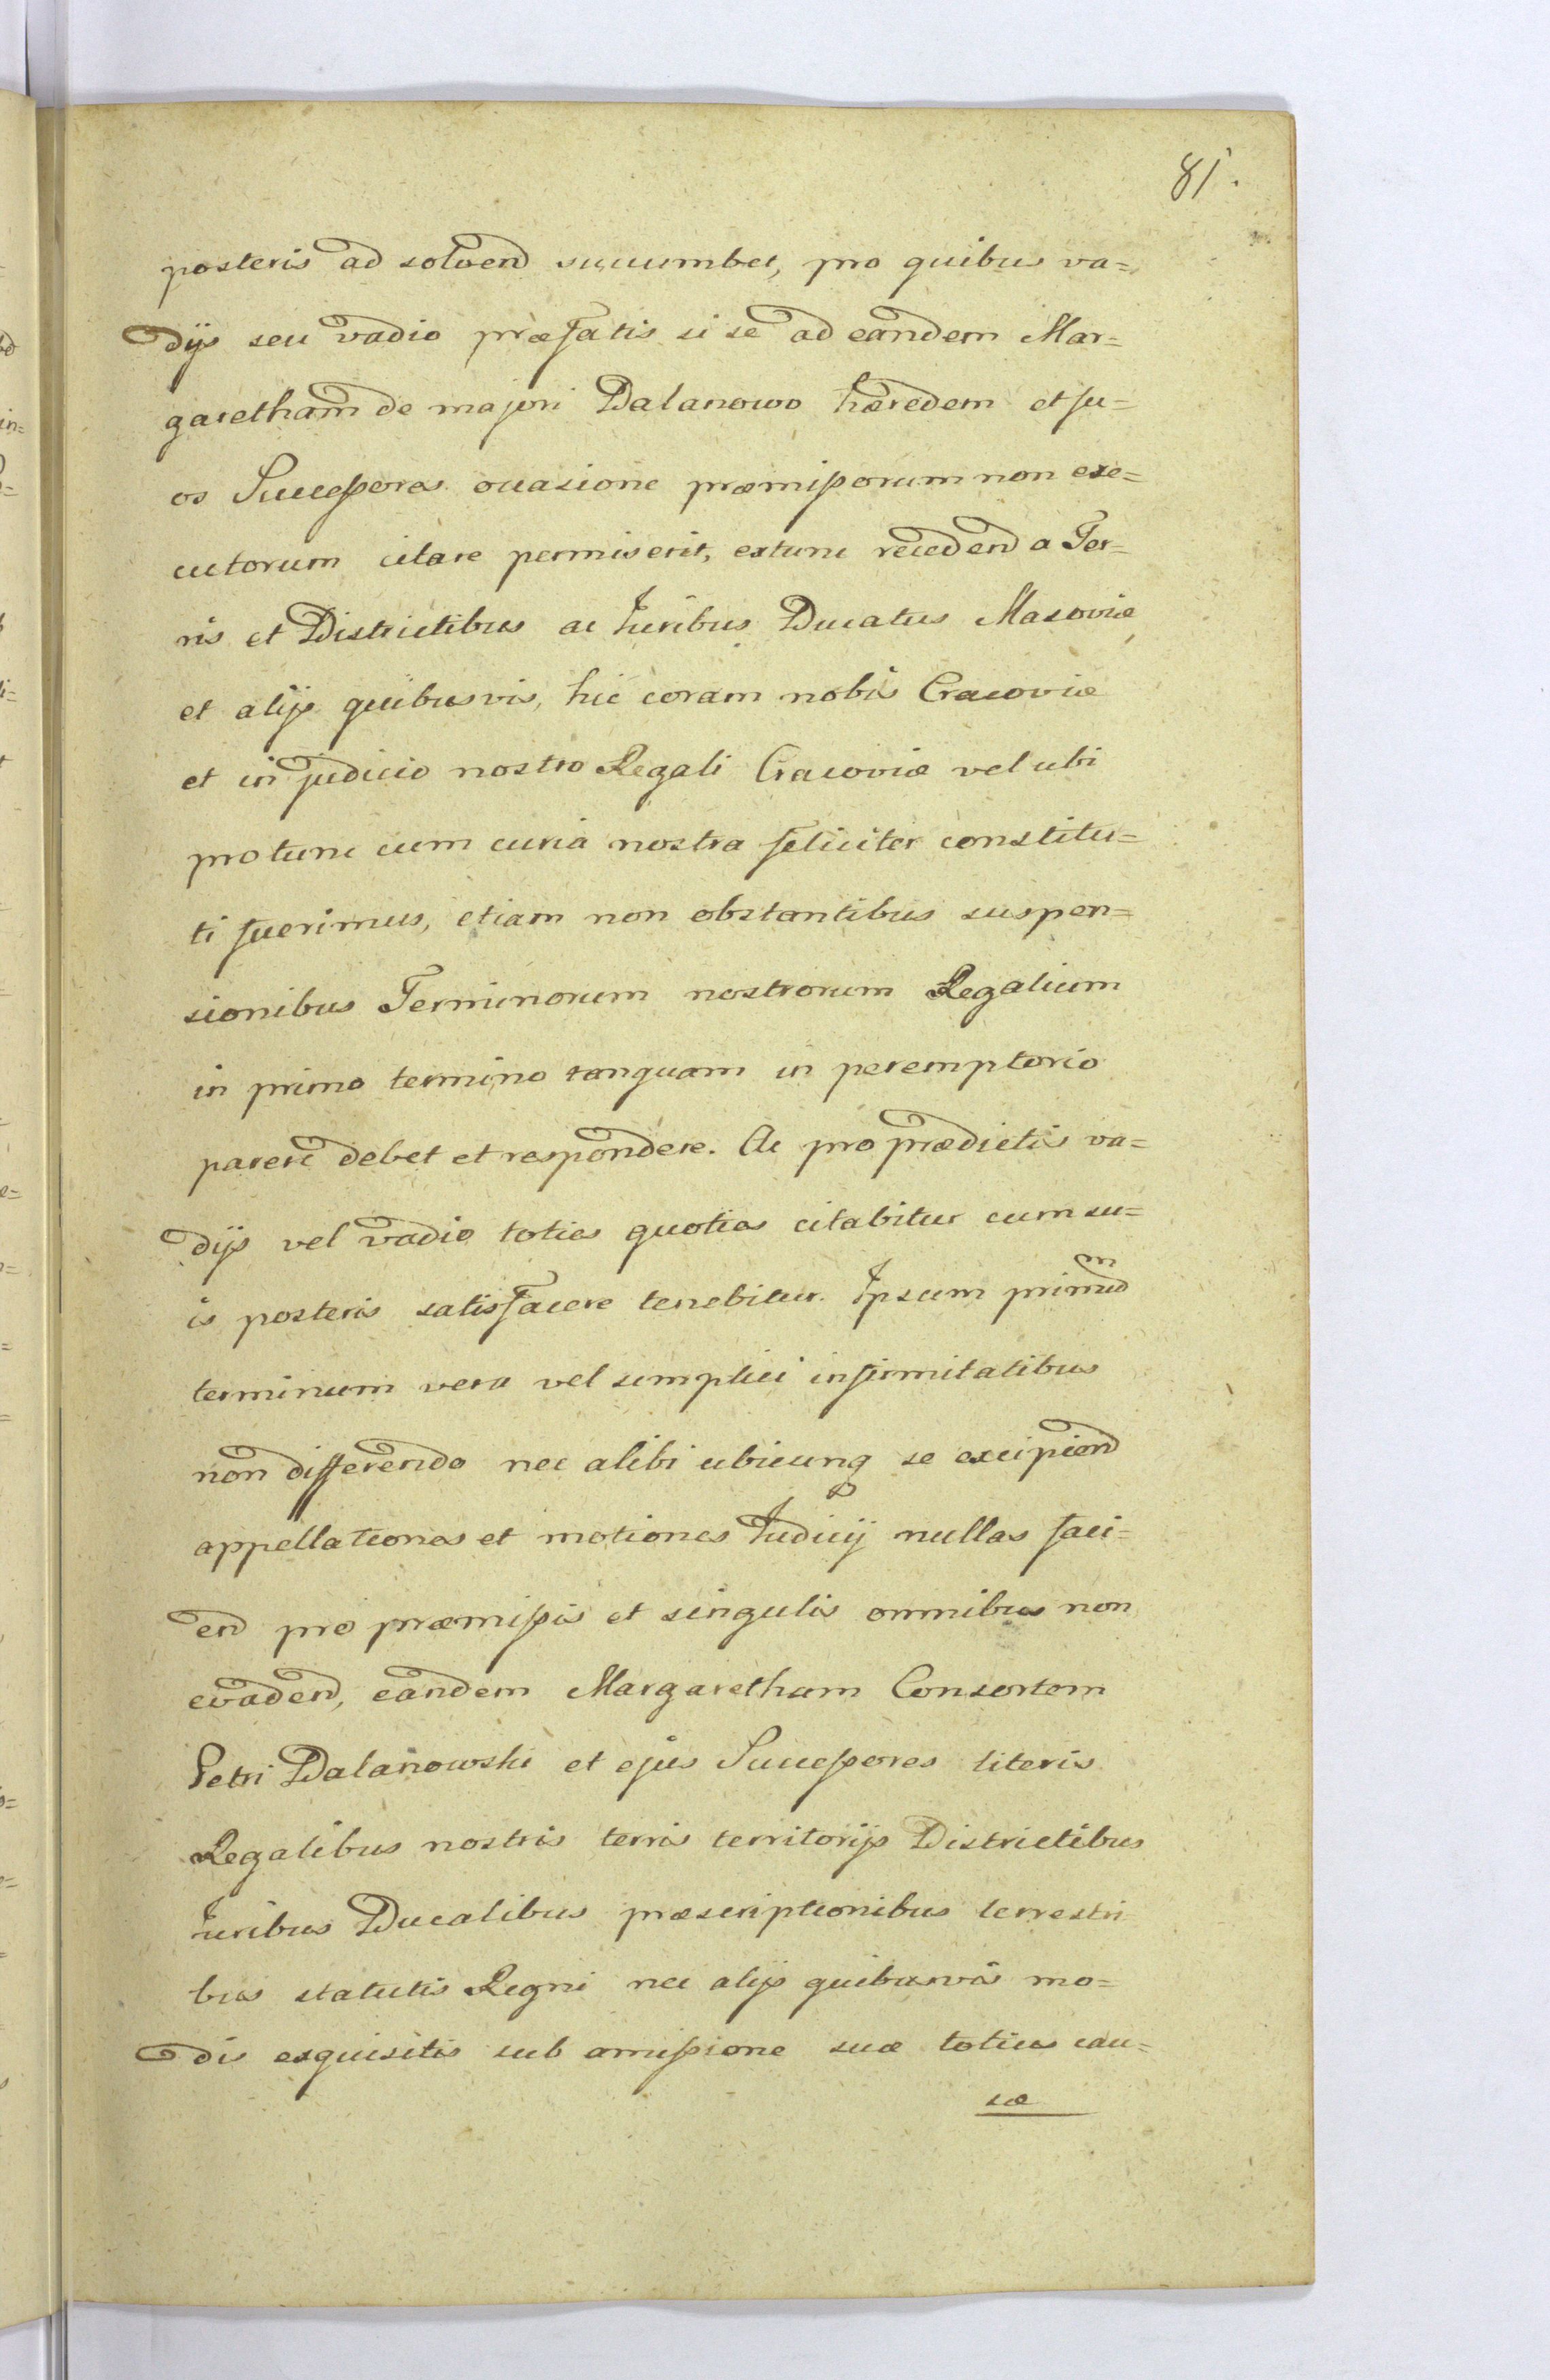 81.
posteris ad solvend succumbet, pro quibus va=
dijs seu vadio præfatis si se ad eandem Mar=
garetham de majori Dalanowo hæredem et su=
os Successores occasione præmissorum non exe=
cutorum citare permiserit, extunc recedend a Ter=
ris et Districtibus ac Iuribus Ducatus Masoviæ
et alijs quibusvis, hic coram nobis Cracoviæ
et in judicio nostro Regali Cracoviæ vel ubi
protunc cum curia nostra feliciter constitu=
ti fuerimus, etiam non obstantibus suspen=
sionibus Terminorum nostrorum Regalium
in primo termino tanquam in peremptorio
parere debet et respondere. Ac pro prædictis va=
dijs vel vadio toties quoties citabitur cum su=
is posteris satisfacere tenebitur. Ipsum primud m
terminum vera vel simplici infirmitatibus
non differendo nec alibi ubicunq se excipiend
appellationes et motiones Iudicij nullas faci=
end pro præmissis et singulis omnibus non
evadend, eandem Margaretham Consortem
Petri Dalanowski et ejus Successores literis
Regalibus nostris terris territorijs Districtibus
Iuribus Ducalibus præscriptionibus terrestri
bus statutis Regni nec alijs quibusvis mo=
dis exquisitis sub amissione suæ totius cau=
sæ